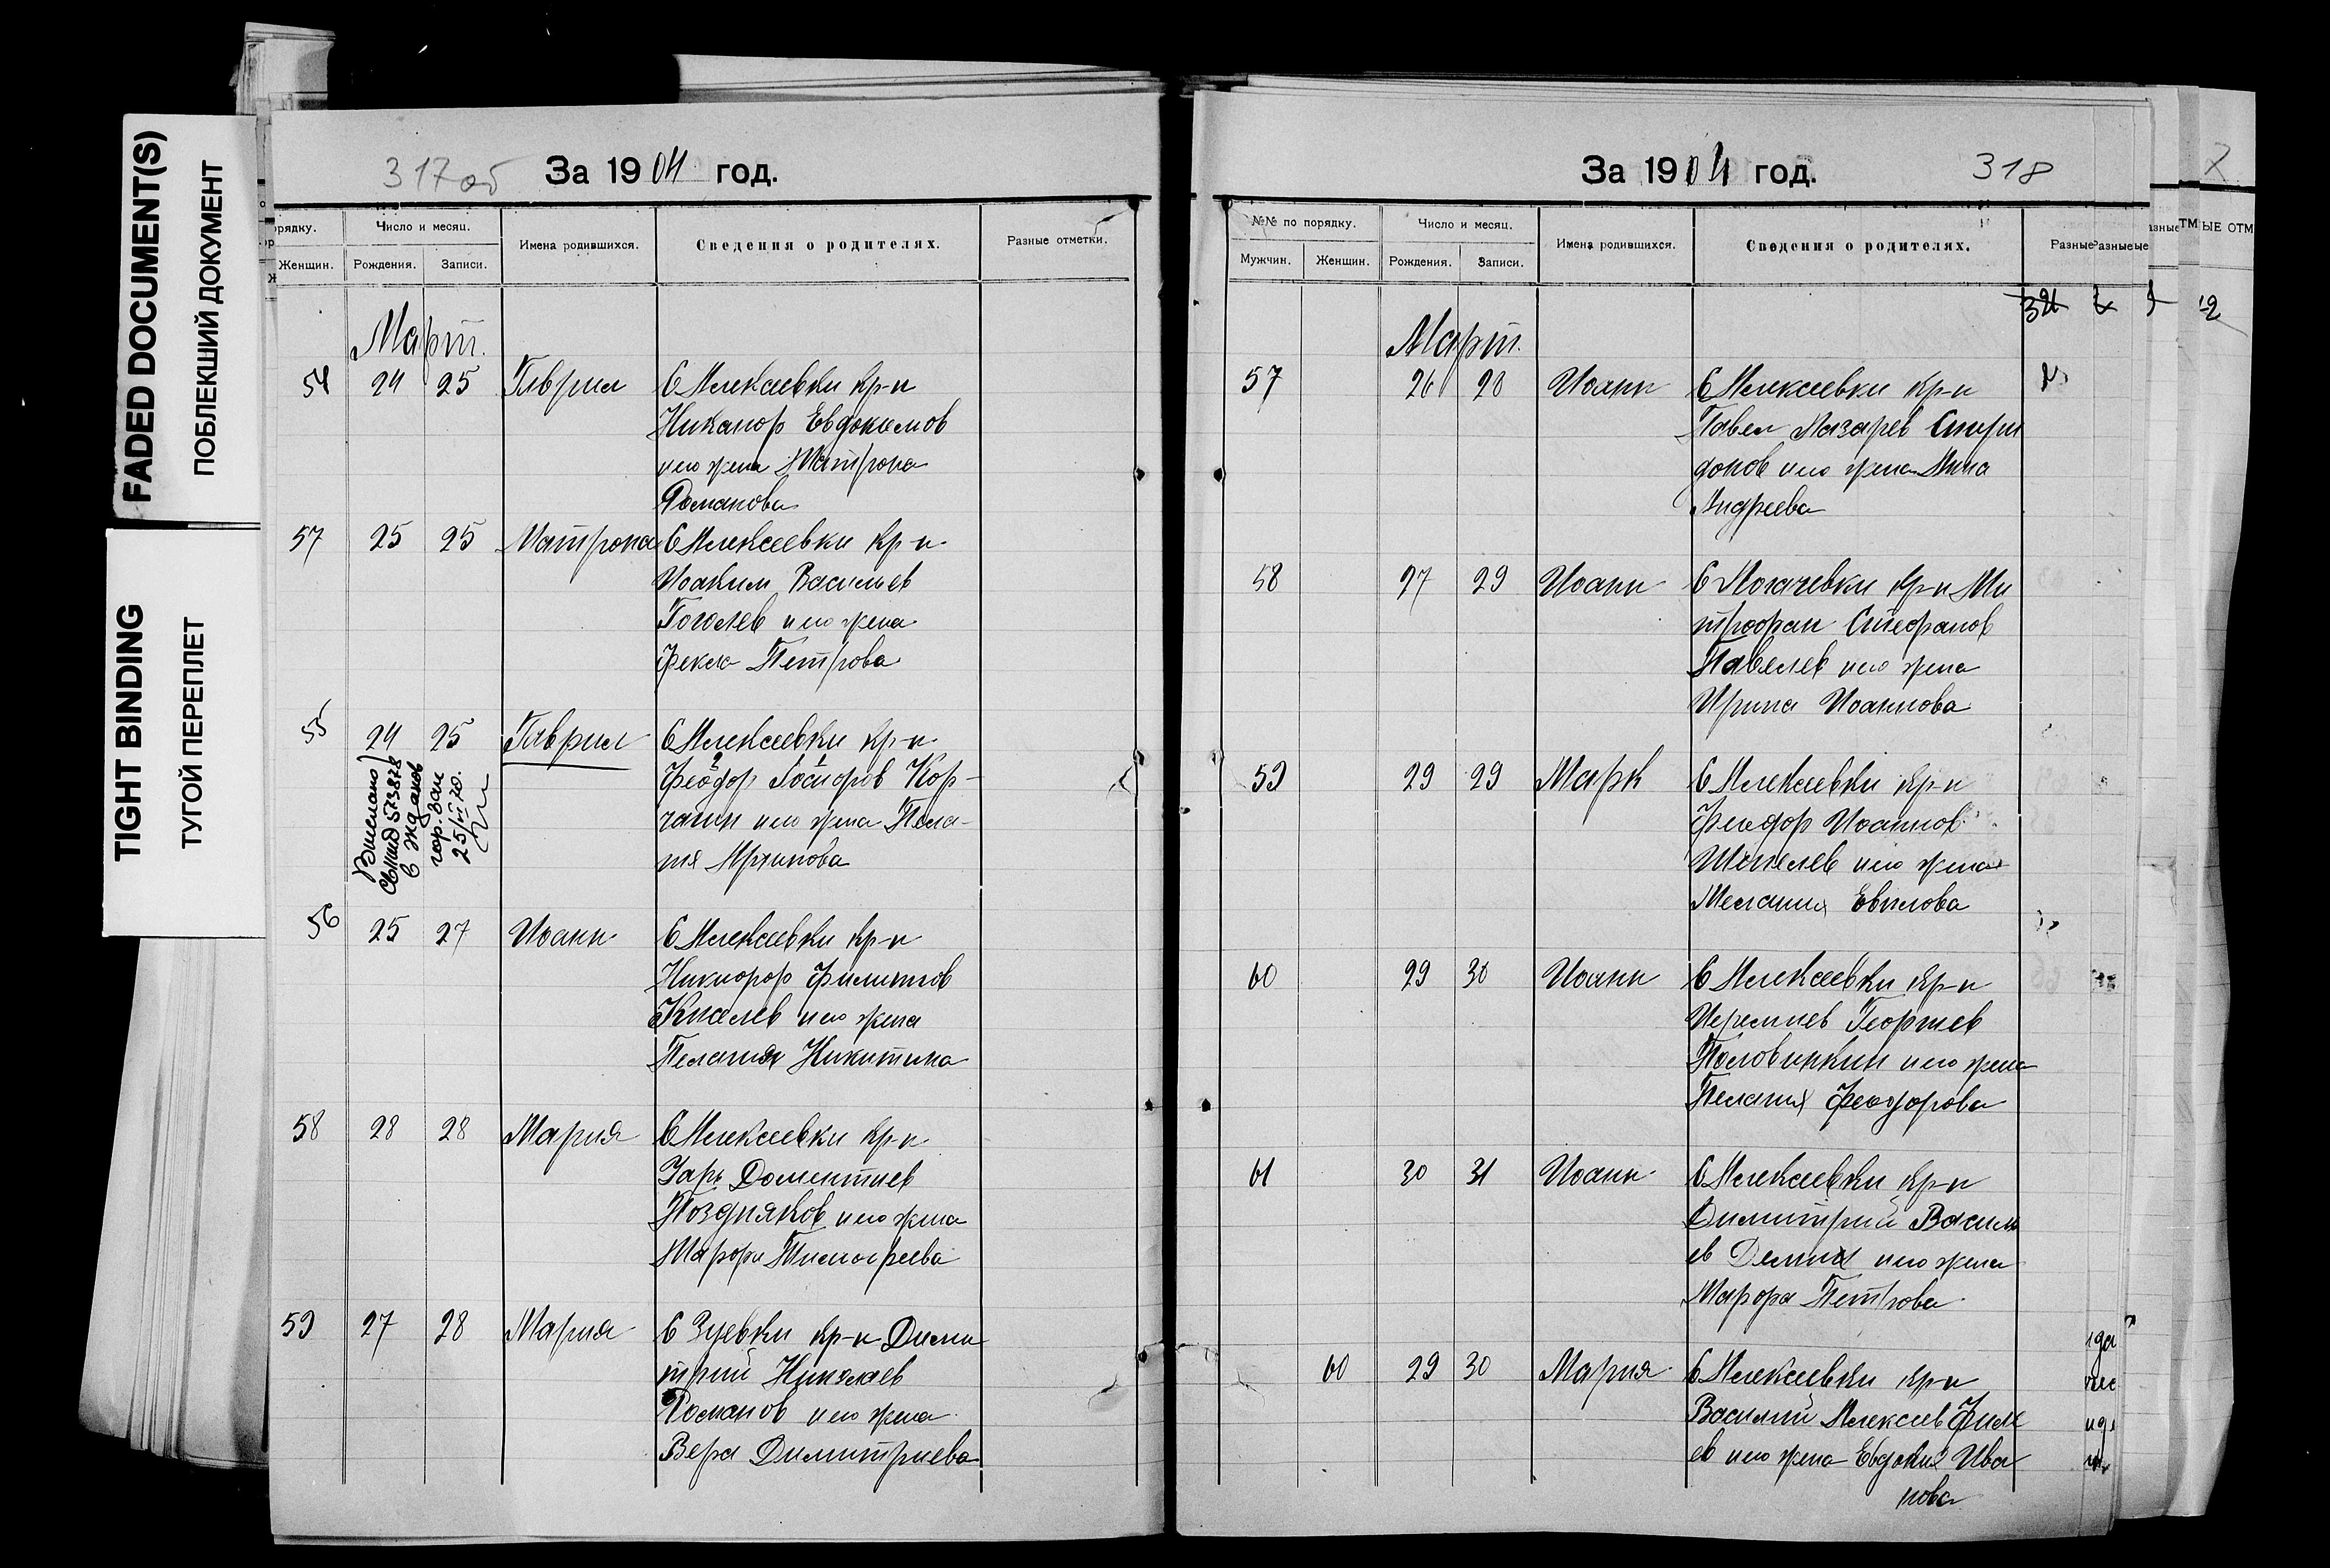 FADED DOCUMENT(S)
ПОБЛЕКШИЙ ДОКУМЕНТ
TIGHT BINDING
ТУГОЙ ПЕРЕПЛЕТ
317об За 1904 год.
рядку. Число и месяц. Имена родившихся. Сведения о родителях. Разные отметки.
Женщин. Рождения. Записи.
Март.
54 24 25 Гаврил С Алексеевки кр-н
Никанор Евдокимов
и его жена Матрона
Романова
57 25 25 Матрона С Алексеевки кр-н
Иоаким Васильев
Гоголев и его жена
Фекла Петрова
55 24 25 Гаврил С Алексеевки кр-н
Феодор Кор-
чагин и его жена Пела-
гия
Выслано
свид 573878
в Жданов
гор. Заг
25/VI-70.
56 25 27 Иоанн С Алексеевки кр-н
Никифор Филиппов
Киселев и его жена
Пелагия Никитина
58 28 28 Мария С Алексеевки кр-н
Дометиев
Поздняков и его жена
Марфа Тимофеева
59 27 28 Мария С Зуевки кр-н Дими
трий Николаев
Романов и его жена
Вера Димитриева
За 1904 год. 318
№№ по порядку. Число и месяц. Имена родившихся. Сведения о родителях. Разные
Мужчин. Женщин. Рождения. Записи.
Март.
57 26 28 Иоанн С Алексеевки кр-н
Павел Лазарев Спири
донов и его жена Анна
Андреева
58 27 29 Иоанн С Могачевки кр-н Ми
трофан Стефанов
Павелев и его жена
Ирина Иоаннова
59 29 29 Марк С Алексеевки кр-н
Феодор Иоаннов
Шепелев и его жена
Мелания
60 29 30 Иоанн С Алексеевки кр-н
Иеремиев Георгиев
Половинкин и его жена
Пелагия Феодорова
61 30 31 Иоанн С Алексеевки кр-н
Димитрий Василь
ев Демин и его жена
Марфа Петрова
60 29 30 Мария С Алексеевки кр-н
Василий Алексеев
ев и его жена Евдокия Ива
нова